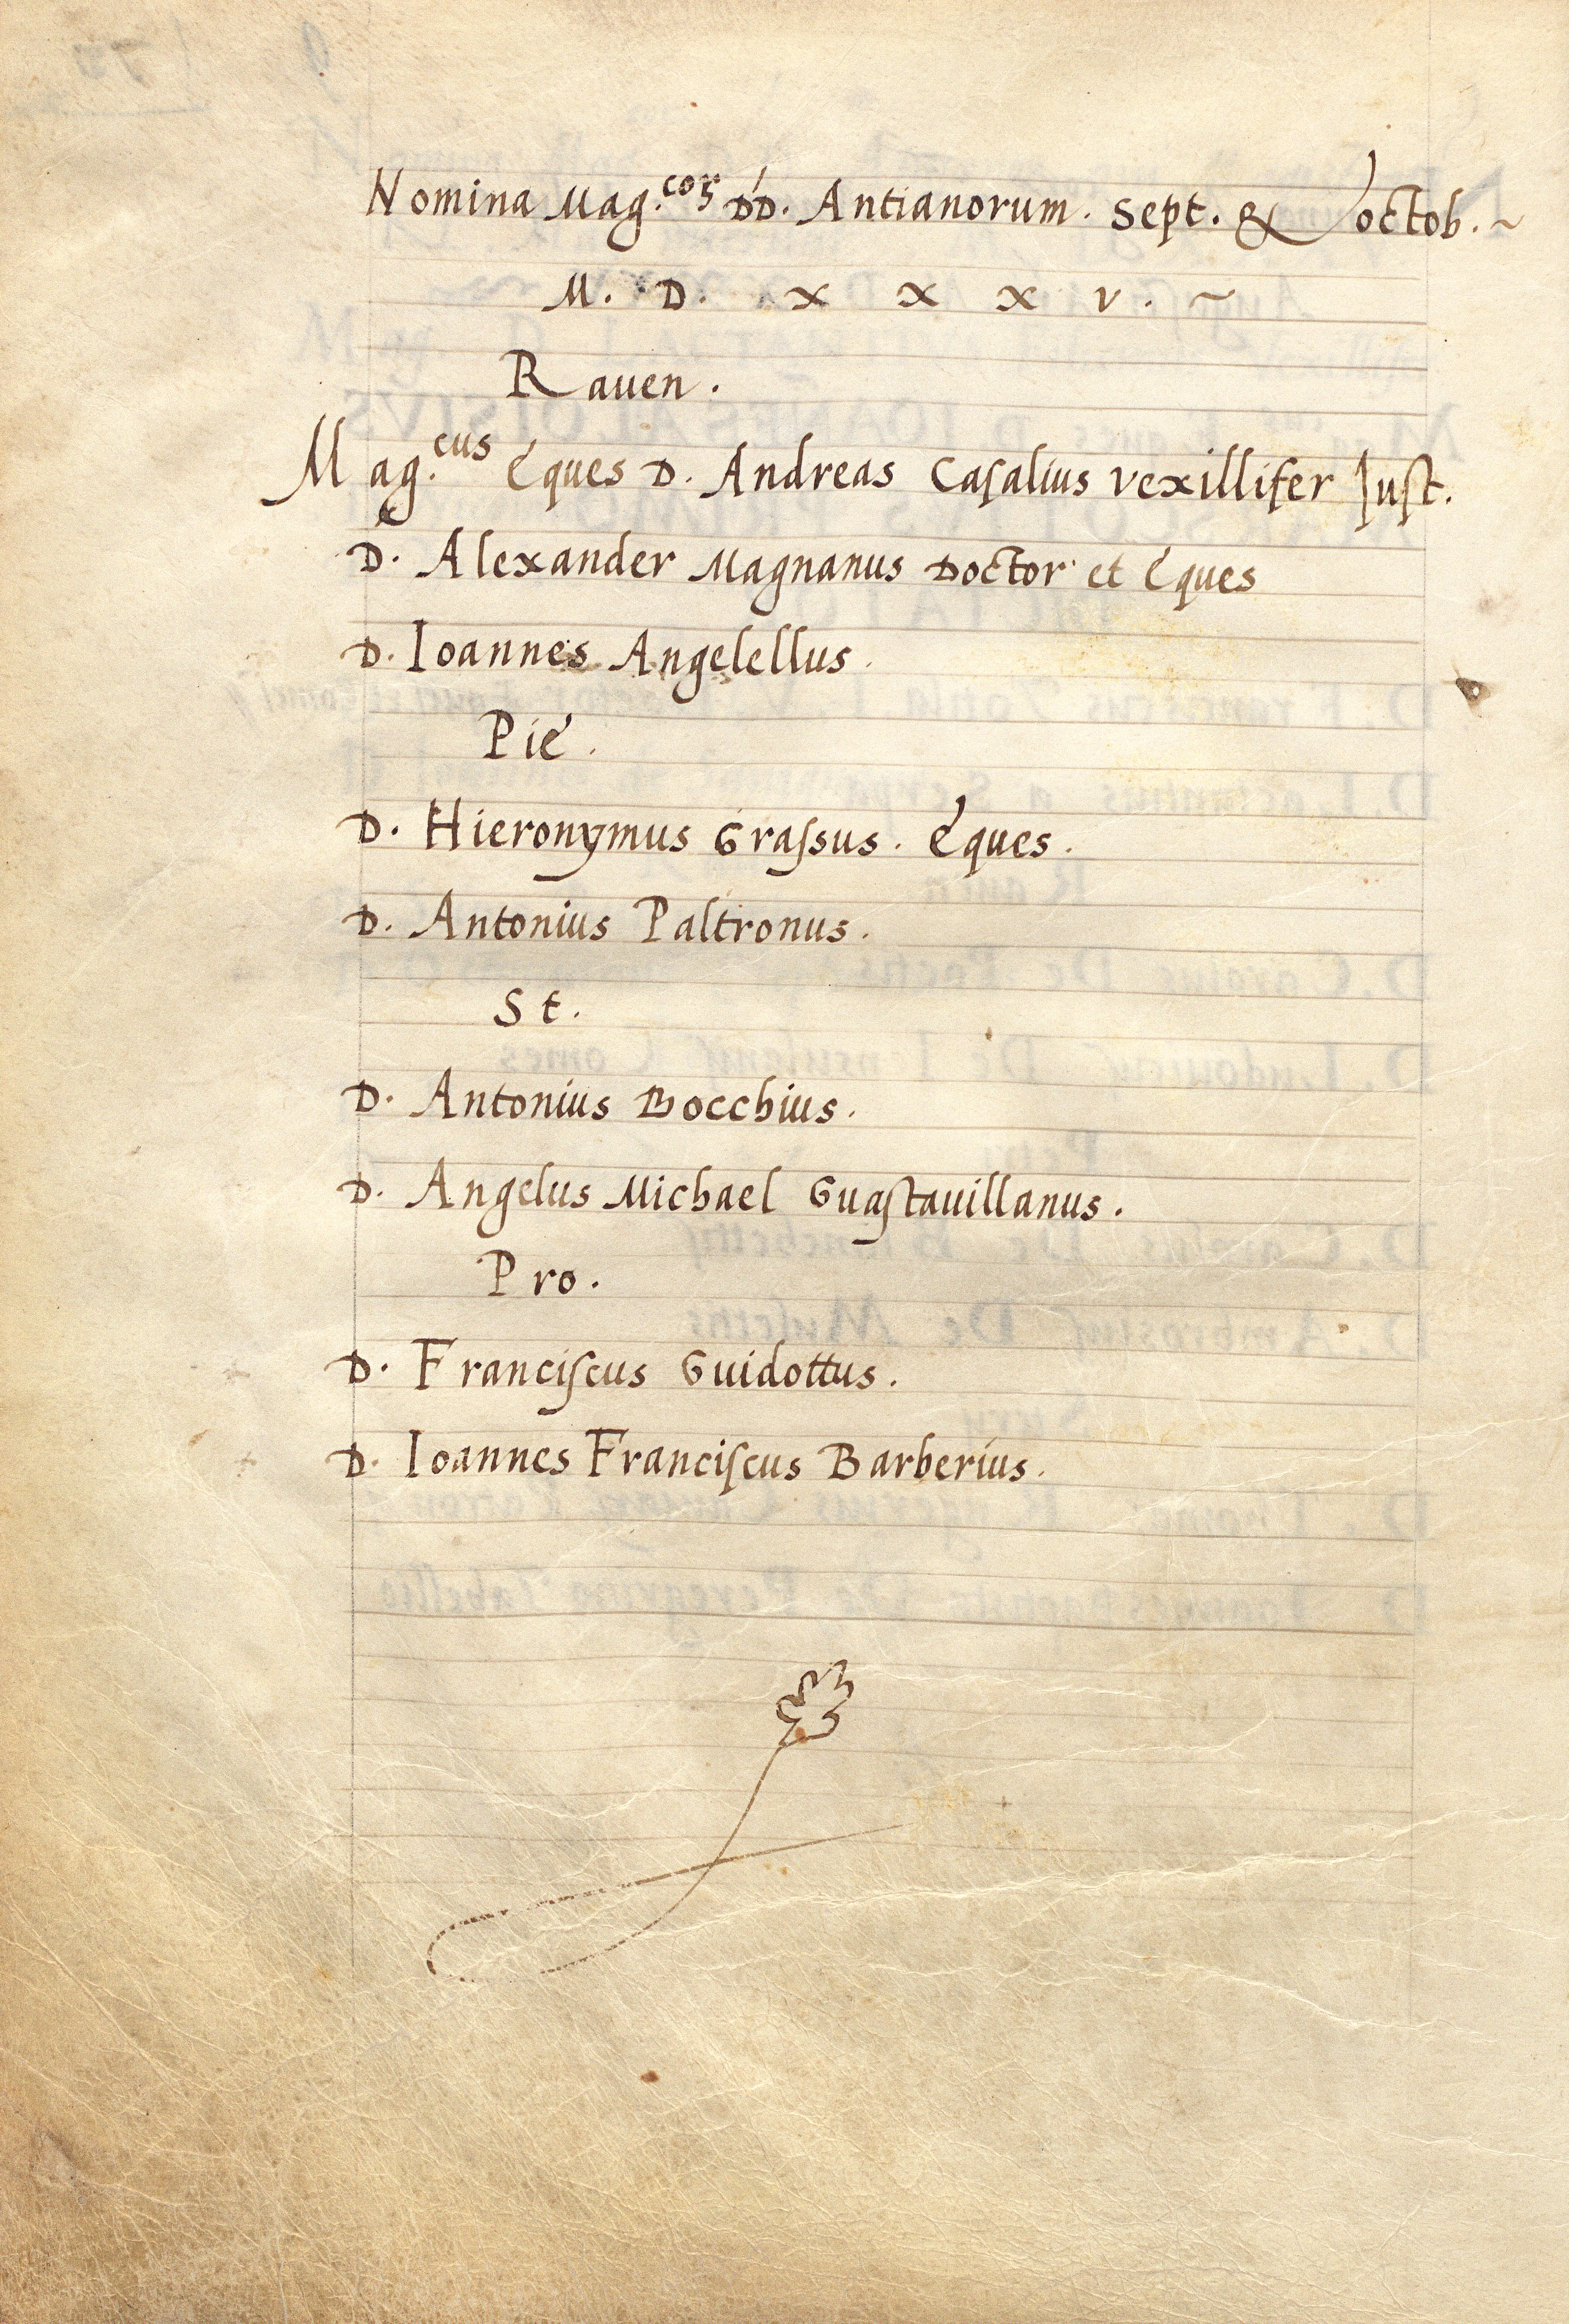 Nomina Mag.coꝝ DD. Antianorum. Sept. & octob. ~
M. D. x x x v. ~
Rauen.
Mag.cus Eques D. Andreas Caſalius vexillifer Juſt.
D. Alexander Magnanus Doctor et Eques
D. Ioannes Angelellus.
Pie.
D. Hieronymus Graſsus. Eques.
D. Antonius Paltronus.
St.
D. Antonius Bocchius.
D. Angelus Michael Guaſtauillanus.
Pro.
D. Franciſcus Guidottus.
D. Ioannes Franciſcus Barberius.